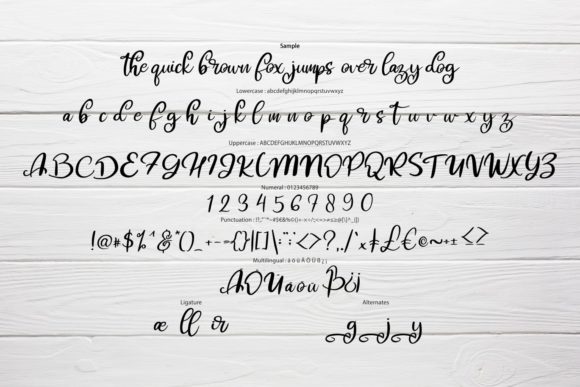 Sample
the quick brown fox jumps over lazy dog
Lowercase : abcdefghijklmnopqrstuvwxyz
a b c d e f g h i j k l m n o p q r s t u v w x y z
Uppercase : ABCDEFGHIJKLMNOPQRSTUVWXYZ
ABCDEFGHIJKLMNOPQRSTUVWXYZ
Numeral : 0123456789
1234567890
Multilingual : ä ö ü Ä Ö Ü ß ¿ ¡
Ligature
Alternates
æ ll or
g j y